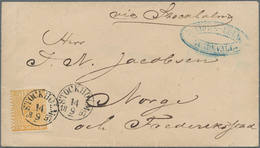 via Stockholm
Herrn
J. N. Jacobsen
Norge
och Frederikstad
STOCKHOLM
14
9
STOCKHOLM
14
9